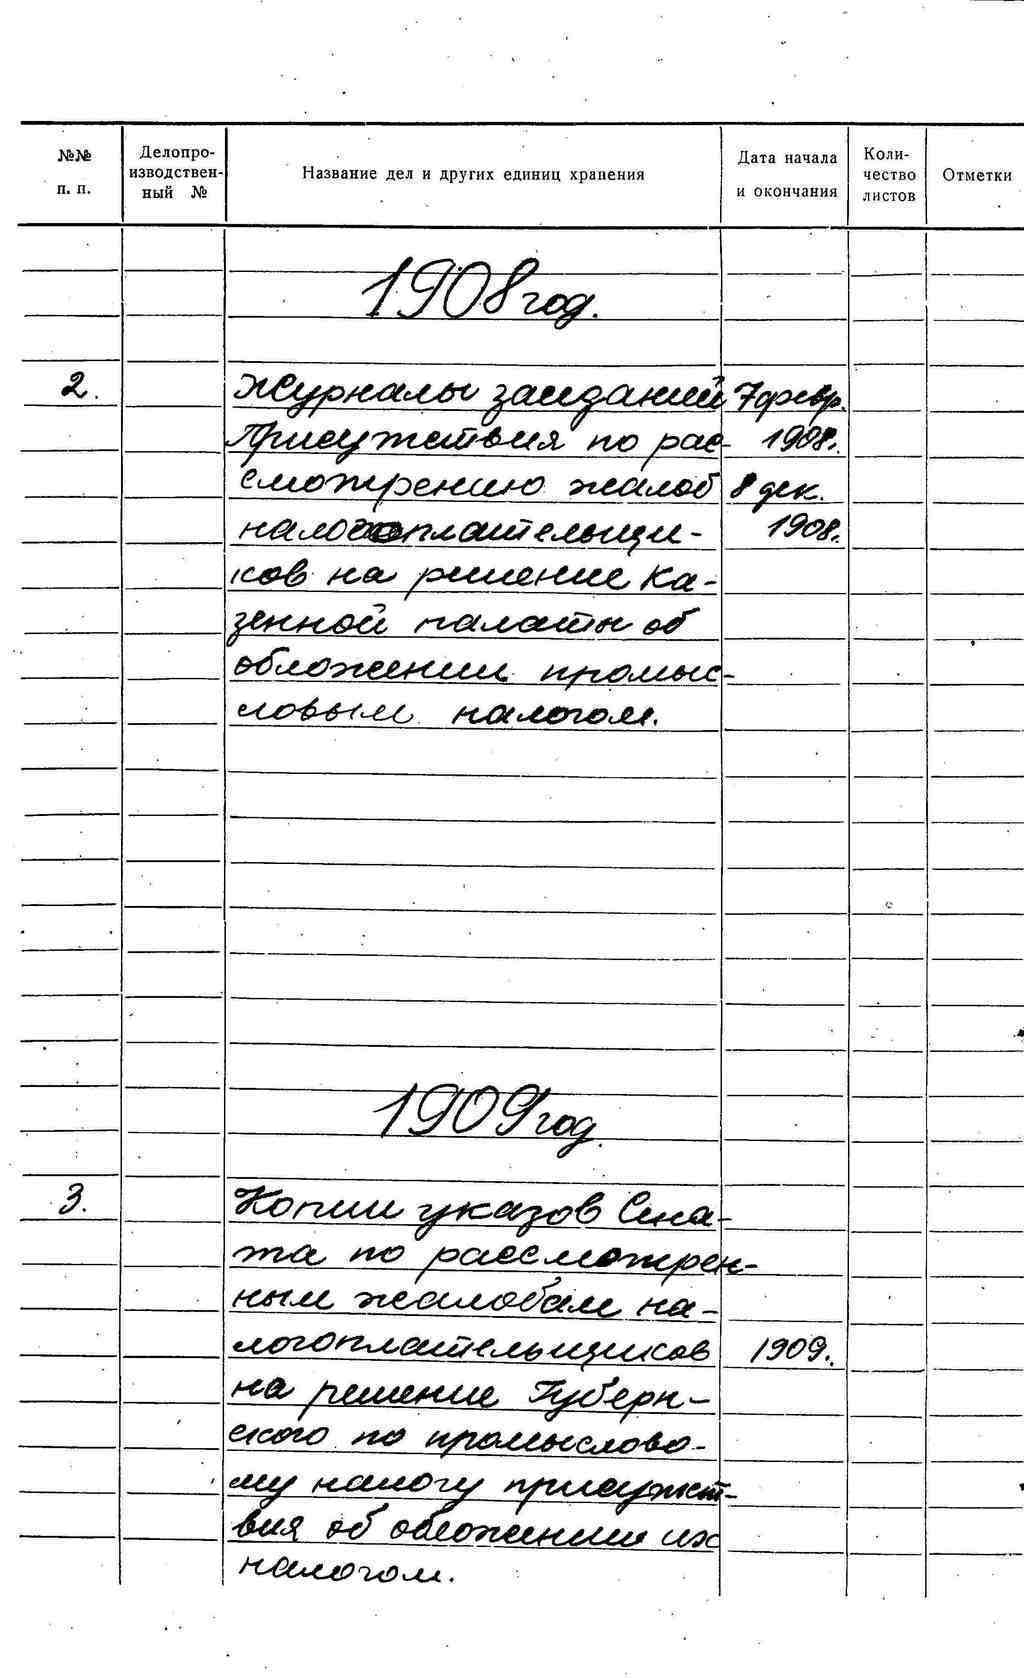 №№ п. п.
Делопро-
изводствен-
ный №
Название дел и других единиц хранения
Дата начала
и окончания
Коли-
чество
листов
Отметки
1908 год.
2. Журналы заседаний 7 февр.
Присутствия по рас- 1908г.
смотрению жалоб 8 дек.
налогоплательщи- 1908г.
ков на решение Ка-
зенной палаты об
обложении промыс-
ловым налогом.
1909 год.
3. Копии указов Сена-
та по рассмотрен-
ным жалобам на-
логоплательщиков 1909г.
на решение Губерн-
ского по промыслово-
му налогу присутст-
вия об обложении их
налогом.